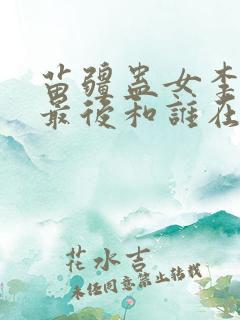 苗疆蠱女李
最後和誰在
花水吉
未经同意禁止转载